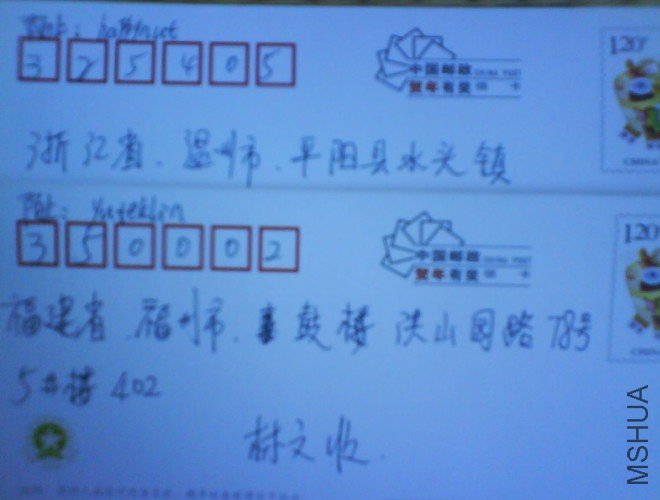 325405
中国邮政 CHINA POST
贺年有奖
1.20
浙江省、温州市、平阳县水头镇
CHINA
350002
中国邮政 CHINA POST
贺年有奖
1.20
福建省、福州市、鼓楼 洪山园路 78号
5#楼 402
林文收
MSHUA